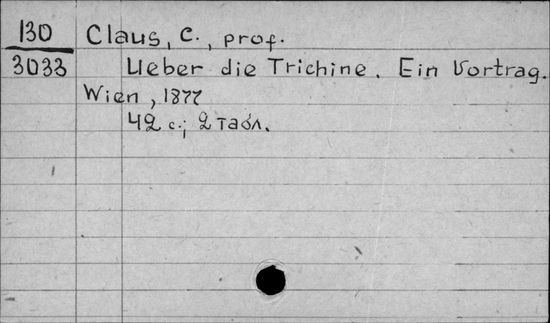 130 Claus, C., prof.
3033 Ueber die Trichine. Ein Vortrag.
Wien, 1877
42 с.; 2 табл.